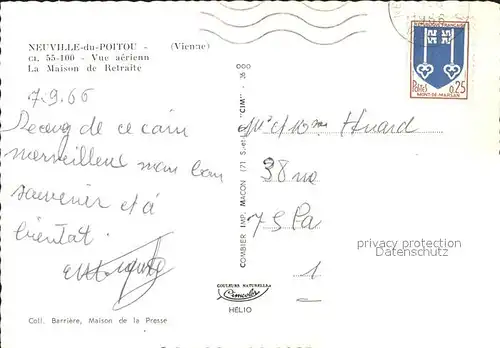 NEUVILLE-du-POITOU - (Vienne)
CI. 55-100 - Vue aérienn
La Maison de Retraite
7.9.66
de ce coin
merveilleux mon bon
souvenir et à
bientôt.
COMBIER IMP. MACON (71 S.-et-L.) "CIM" - 36 000
RÉPUBLIQUE FRANÇAISE
Postes 0,25
MONT-DE-MARSAN
Huard
38 rue
75 Pa
1
privacy protection
Datenschutz
COULEURS NATURELLES
Cimcolor
HÉLIO
Coll. Barrière, Maison de la Presse